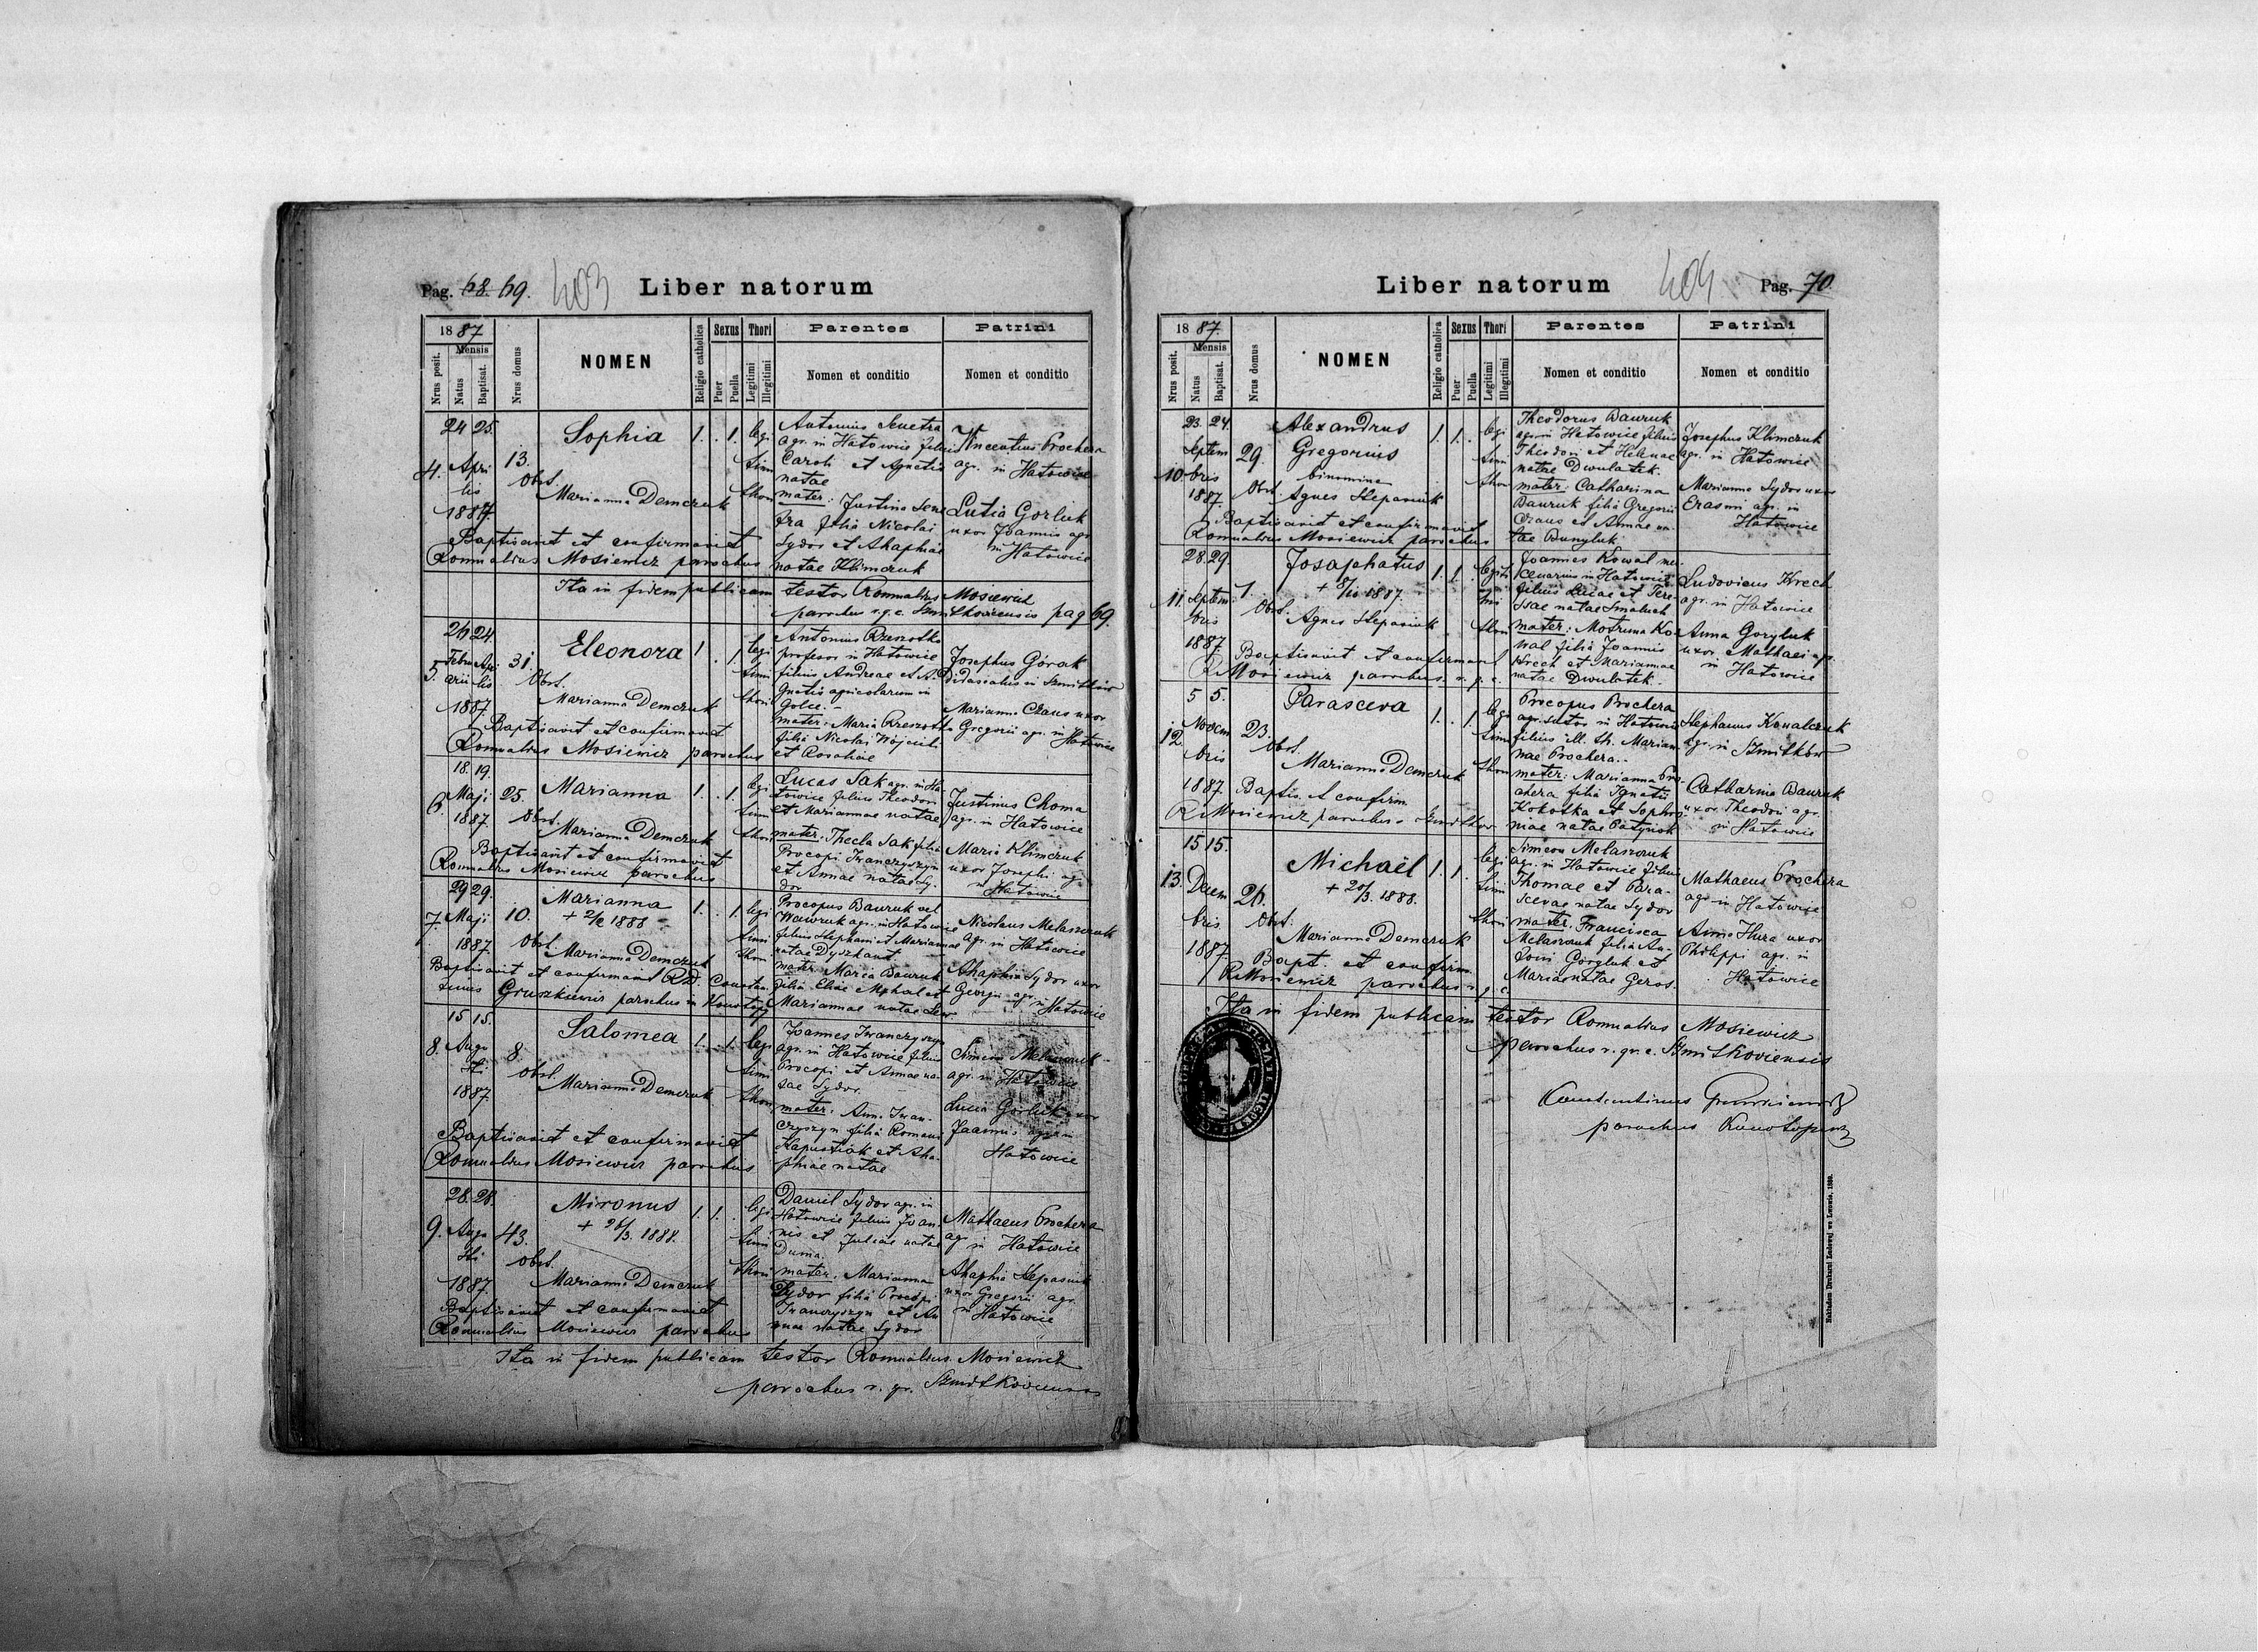 Pag. 68. 69. 403 Liber natorum
1887
Mensis
Nrus posit.
Natus
Baptisat.
Nrus domus
NOMEN
Religio catholica
Sexus
Puer
Puella
Thori
Legitimi
Illegitimi
Parentes
Nomen et conditio
Patrini
Nomen et conditio
4. 24 25. Aprilis 1887. 13.
Sophia 1. . 1. legi
timi
thori
Obst.
Marianna Demczuk
Antonius
agr. in Hatowice filius
Caroli et Agnetis
natae
mater: Justina
filia Nicolai
Sydor et Ahaphiae
natae Klimczuk
Vincentius Prochera
agr. in Hatowice
Lutia Gorluk
uxor Joannis agr.
in Hatowice
Baptisavit et confirmavit
Romualdus Mosiewicz parochus
Ita in fidem publicam testor Romualdus Mosiewicz
parochus r. g. c. pag 69.
5. 24 Februarii Aprilis 1887. 31.
Eleonora 1 . 1. legi
timi
thori
Obst.
Marianna Demczuk
Antonius Rzeszotko
profesor in Hatowice
filius Andreae et A-
gnetis agricolarum in
Golce. -
mater: Maria Rzeszotko
filia Nicolai Wojcicki
et Rosaliae
Josephus Górak
Marianna Czaus uxor
Gregorii agr. in Hatowice
Baptisavit et confirmavit
Romualdus Mosiewicz parochus
6. 18. 19. Maji 1887. 25.
Marianna 1. . 1. legi
timi
thori
Obst.
Marianna Demczuk
Lucas Sak agr. in Ha-
towice filius Theodori
et Mariannae natae
mater: Thecla Sak filia
Procopi Iwanczyszyn
et Annae natae Sy-
dor
Justinus Choma
agr. in Hatowice
Maria Klimczuk
uxor Josephi agr.
in Hatowice
Baptisavit et confirmavit
Romualdus Mosiewicz parochus
7. 29 29. Maji 1887. 10.
Marianna 1. . 1. legi
timi
thori
1888
Obst.
Marianna Demczuk
Procopus Bauruk vel
Wawruk agr. in Hatowice
filius Stephani et Mariannae
natae Dyszkant
mater: Maria Bauruk
filia Eliae Mychal et
Mariannae natae
Nicolaus Melaszczuk
agr. in Hatowice
Ahaphia Sydor uxor
Georgii agr. in Hatowice
Baptisavit et confirmavit Constan-
tinus Gruszkiewicz parochus in Konotopy
8. 15 15. Augusti 1887. 8.
Salomea 1. . 1. legi
timi
thori
Obst.
Marianna Demczuk
Joannes Iwanczyszyn
agr. in Hatowice filius
Procopi et Annae na-
tae Sydor.
mater: Anna Iwan-
czyszyn filia Romani
Kapustiak et Aha-
phiae natae
Simeon Melaszczuk
agr. in Hatowice
Lucia Gorluk uxor
Joannis agr. in
Hatowice
Baptisavit et confirmavit
Romualdus Mosiewicz parochus
9. 28. 28. Augusti 1887. 43.
Mironus 1. 1. . legi
timi
thori
1888.
Obst.
Marianna Demczuk
Daniel Sydor agr. in
Hatowice filius Joan-
nis et Juliae natae
Duma.
mater: Marianna
Sydor filia Procopi
Iwanczyszyn et An-
nae natae Sydor
Mathaeus Prochera
agr. in Hatowice
Ahaphia Stepaniuk
uxor Gregorii agr.
in Hatowice
Baptisavit et confirmavit
Romualdus Mosiewicz parochus
Ita in fidem publicam testor Romualdus Mosiewicz
parochus r. gr. Szmitkoviensis
Liber natorum 404 Pag. 70.
1887.
Mensis
Nrus posit.
Natus
Baptisat.
Nrus domus
NOMEN
Religio catholica
Sexus
Puer
Puella
Thori
Legitimi
Illegitimi
Parentes
Nomen et conditio
Patrini
Nomen et conditio
10 23. 24. Septembris 1887. 29.
Alexandrus
Gregorius
binomine
1. 1. . legi
timi
thori
Obst. Agnes Stepaniuk
Theodorus Bauruk
agr. in Hatowice filius
Theodori et Helenae
natae Dwulatek.
mater: Catharina
Bauruk filia Gregorii
Czaus et Annae na-
tae Bunyluk
Josephus Klimczuk
agr. in Hatowice
Marianna Sydor uxor
Erasmi agr. in
Hatowice
Baptisavit et confirmavit
Romualdus Mosiewicz parochus
11. 28. 29. Septembris 1887. 1.
Josaphatus 1. 1. . legiti
mi
thori
+ 8/10 1887.
Obst. Agnes Stepaniuk
Joannes Kowal mer-
cenarius in Hatowice
filius Lucae et Tere-
ssae natae Smoluch
mater: Motruna Ko-
wal filia Joannis
Krech et Mariannae
natae Dwulatek.
Ludovicus Krech
agr. in Hatowice
Anna Goryluk
uxor Mathaei agr.
in Hatowice
Baptisavit et confirmavit
R Mosiewicz parochus r. g. c.
12. 5 5. Novembris 1887. 23.
Parasceva 1. . 1. legi
timi
thori
Obst.
Marianna Demczuk
Procopus Prochera
agr. sutor in Hatowice
filius ill. th. Marian-
nae Prochera. -
mater: Marianna Pro-
chera filia Ignatii
Kokotka et Sophro-
niae natae Patynok
Stephanus Kowalczuk
agr. in Szmitków
Catharina Bauruk
uxor Theodori agr.
in Hatowice
Baptis. et confirm.
R Mosiewicz parochus
13. 15 15. Decembris 1887. 26.
Michaël 1. 1. . legi
timi
thori
+ 20/3. 1888.
Obst.
Marianna Demczuk
Simeon Melaszczuk
agr. in Hatowice filius
Thomae et Para-
scevae natae Sydor
mater: Francisca
Melaszczuk filia An-
tonii Goryluk et
Mariae natae Geros.
Mathaeus Prochera
agr. in Hatowice
Anna Hura uxor
Philippi agr. in
Hatowice
Bapt. et confirm.
R Mosiewicz parochus r. g. c.
Ita in fidem publicam testor Romualdus Mosiewicz
parochus r. gr. c. Szmitkoviensis
Constantinus Gruszkiewicz
parochus
Nakładem Drukarni Ludowej we Lwowie.